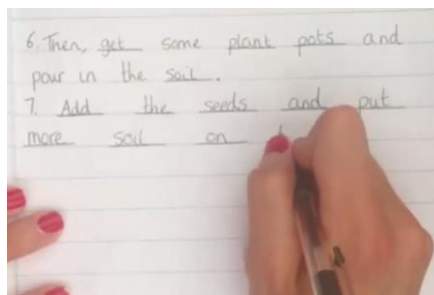 6. Then, get some plant pots and
pour in the soil.
7. Add the seeds and put
more soil on